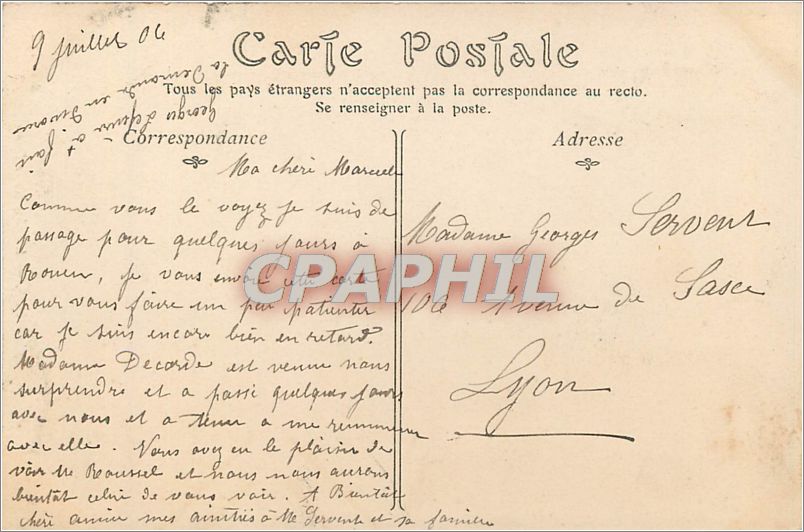 9 Juillet 06
Georges Lefevre a fait
la demande en
Carte Postale
Tous les pays étrangers n'acceptent pas la correspondance au recto.
Se renseigner à la poste.
Correspondance
Adresse
Ma chèri Marcelle
Comme vous le voyez je suis de
passage pour quelques jours à
Rouen, je vous envoie cette carte
pour vous faire un peu patienter
car je suis encore bien en retard.
Madame Decorde est venue nous
surprendre et a passé quelques jours
avec nous et a tenue a me remmener
avec elle. Vous avez eu le plaisir de
voir Me Roussel et nous nous aurons
bientôt celui de vous voir. A Bientôt
chèri amie mes amitiés à Me Servent et sa famille
Madame Georges Servent
106 Avenue de Saxe
Lyon
CPAPHIL